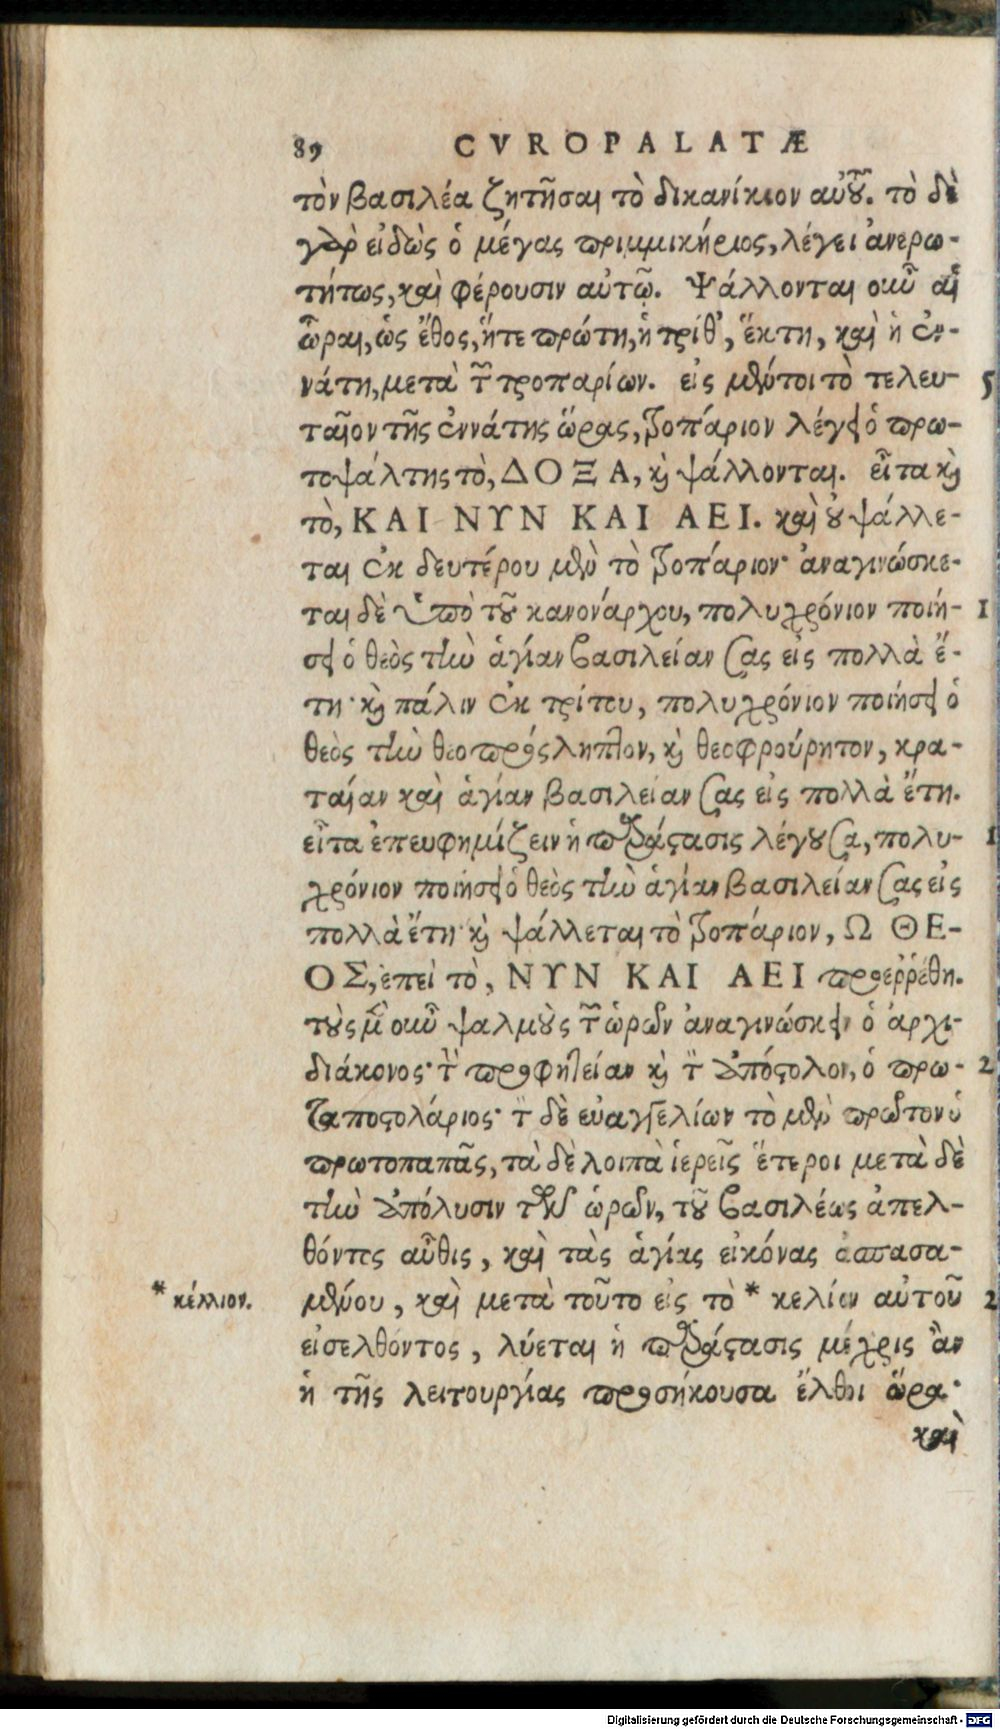 89 CVROPALATÆ
τὸν βασιλέα ζητῆσαι τὸ δικανίκιον αὐτοῦ. τὸ δὲ
γὰρ εἰδὼς ὁ μέγας πριμμικήριος, λέγει ἀνερω-
τήτως, καὶ φέρουσιν αὐτῷ. Ψάλλονται οὖν αἱ
ὧραι, ὡς ἔθος, ἥτε πρώτη, ἡ τρίτη, ἕκτη, καὶ ἡ ἐν-
νάτη, μετὰ τῶν τροπαρίων. εἰς μέντοι τὸ τελευ- 5
ταῖον τῆς ἐννάτης ὥρας, τροπάριον λέγει ὁ πρω-
τοψάλτης τὸ, ΔΟΞΑ, καὶ ψάλλονται. εἶτα καὶ
τὸ, ΚΑΙ ΝΥΝ ΚΑΙ ΑΕΙ. καὶ οὐ ψάλλε-
ται ἐκ δευτέρου μὲν τὸ τροπάριον· ἀναγινώσκε-
ται δὲ ὑπὸ τοῦ κανονάρχου, πολυχρόνιον ποιή- 1
σει ὁ θεὸς τὴν ἁγίαν βασιλείαν σας εἰς πολλὰ ἔ-
τη· καὶ πάλιν ἐκ τρίτου, πολυχρόνιον ποιήσει ὁ
θεὸς τὴν θεοπρόσληπτον, καὶ θεοφρούρητον, κρα-
ταίαν καὶ ἁγίαν βασιλείαν σας εἰς πολλὰ ἔτη.
εἶτα ἐπευφημίζειν ἡ παράστασις λέγουσα, πολυ- 1
χρόνιον ποιήσει ὁ θεὸς τὴν ἁγίαν βασιλείαν σας εἰς
πολλὰ ἔτη· καὶ ψάλλεται τὸ τροπάριον, Ω ΘΕ-
ΟΣ, ἐπεὶ τὸ, ΝΥΝ ΚΑΙ ΑΕΙ προερρέθη.
τοὺς μὲν οὖν ψαλμοὺς τῶν ὡρῶν ἀναγινώσκει ὁ ἀρχι-
διάκονος· τὴν προφητείαν καὶ τὸν ἀπόστολον, ὁ πρω- 2
ταποστολάριος· τῶν δὲ εὐαγγελίων τὸ μὲν πρῶτον ὁ
πρωτοπαπᾶς, τὰ δὲ λοιπὰ ἱερεῖς ἕτεροι μετὰ δὲ
τὴν ἀπόλυσιν τῶν ὡρῶν, τοῦ βασιλέως ἀπελ-
θόντος αὖθις, καὶ τὰς ἁγίας εἰκόνας ἀσπασα-
μένου, καὶ μετὰ τοῦτο εἰς τὸ * κελίον αὐτοῦ 2
* κέλλιον.
εἰσελθόντος, λύεται ἡ παράστασις μέχρις ἂν
ἡ τῆς λειτουργίας προσήκουσα ἔλθοι ὥρα·
καὶ
Digitalisierung gefördert durch die Deutsche Forschungsgemeinschaft - DFG